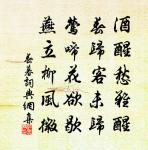 酒醒愁难醒
春歸客未歸
鶯啼花欲歇
燕立柳風微
春暮詞典網集